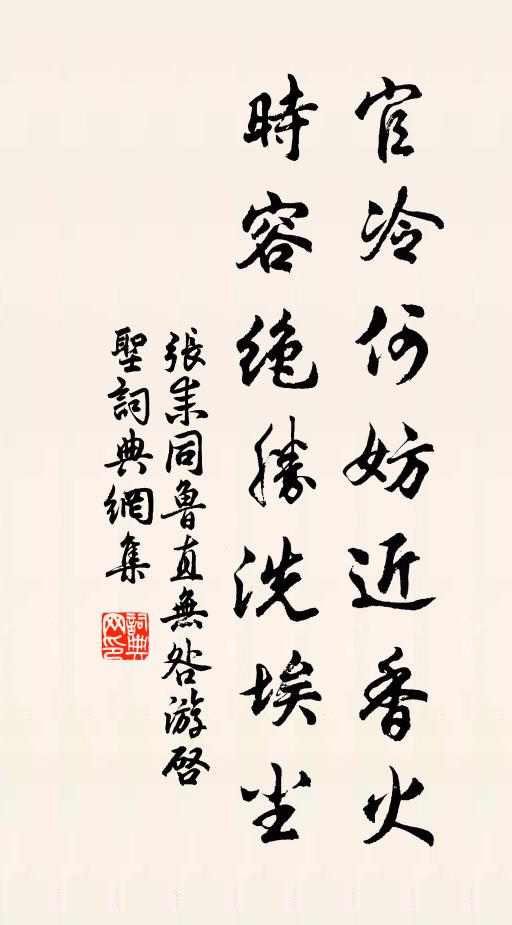 官冷何妨近香火
時容絶勝洗埃尘
張耒同魯直無咎游啓
聖詞典網集
詞典网印